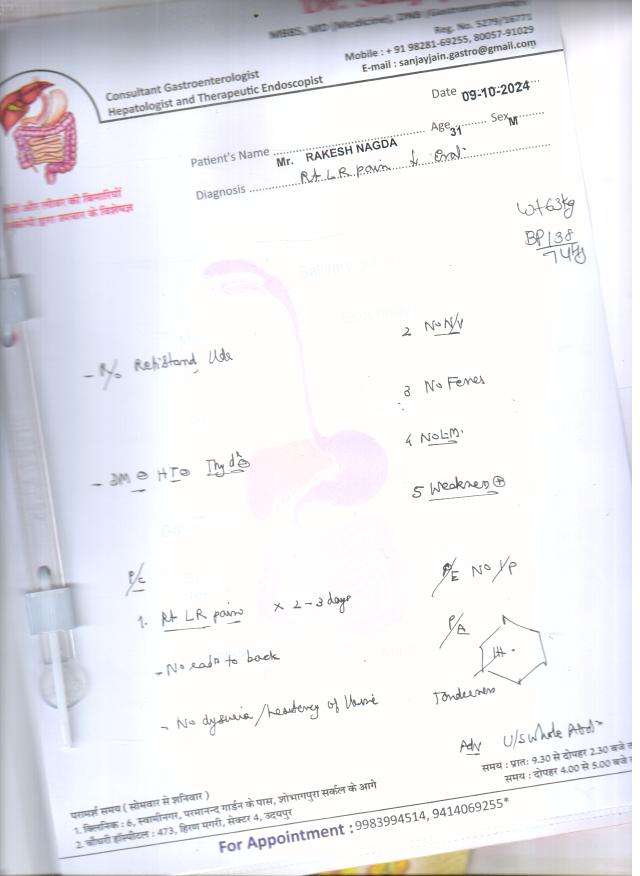 MBBS, MD (Medicine), DNB (Gastroenterology)
Reg. No. 5279/16771
Mobile : + 91 98281-69255, 80057-91029
E-mail : sanjayjain.gastro@gmail.com
Consultant Gastroenterologist
Hepatologist and Therapeutic Endoscopist
Date 09-10-2024
Patient's Name Mr. RAKESH NAGDA Age 31 Sex M
Diagnosis Rt LR pain
और लीवर की बिमारियों
द्वारा उपचार के विशेषज्ञ
Wt 63kg
BP 138
74
- R/o Udr
2 No N/V
3 No Fever
4 No LM.
- DM ⊖ HT ⊖ Thy d ⊖
5 Weakness ⊕
P/c
1. Rt LR pain x 2-3 days
- No radn to back
- No dysuria / hesitency of
P/E No I/P
P/A
Tenderness
Adv U/S Whole Abdn
परामर्श समय ( सोमवार से शनिवार )
1. क्लिनिक : 6, स्वामीनगर, परमानन्द गार्डन के पास, शोभागपुरा सर्कल के आगे
समय : प्रात: 9.30 से दोपहर 2.30 बजे
2. चौधरी हॉस्पीटल : 473, हिरण मगरी, सेक्टर 4, उदयपुर
समय : दोपहर 4.00 से 5.00 बजे
For Appointment : 9983994514, 9414069255*